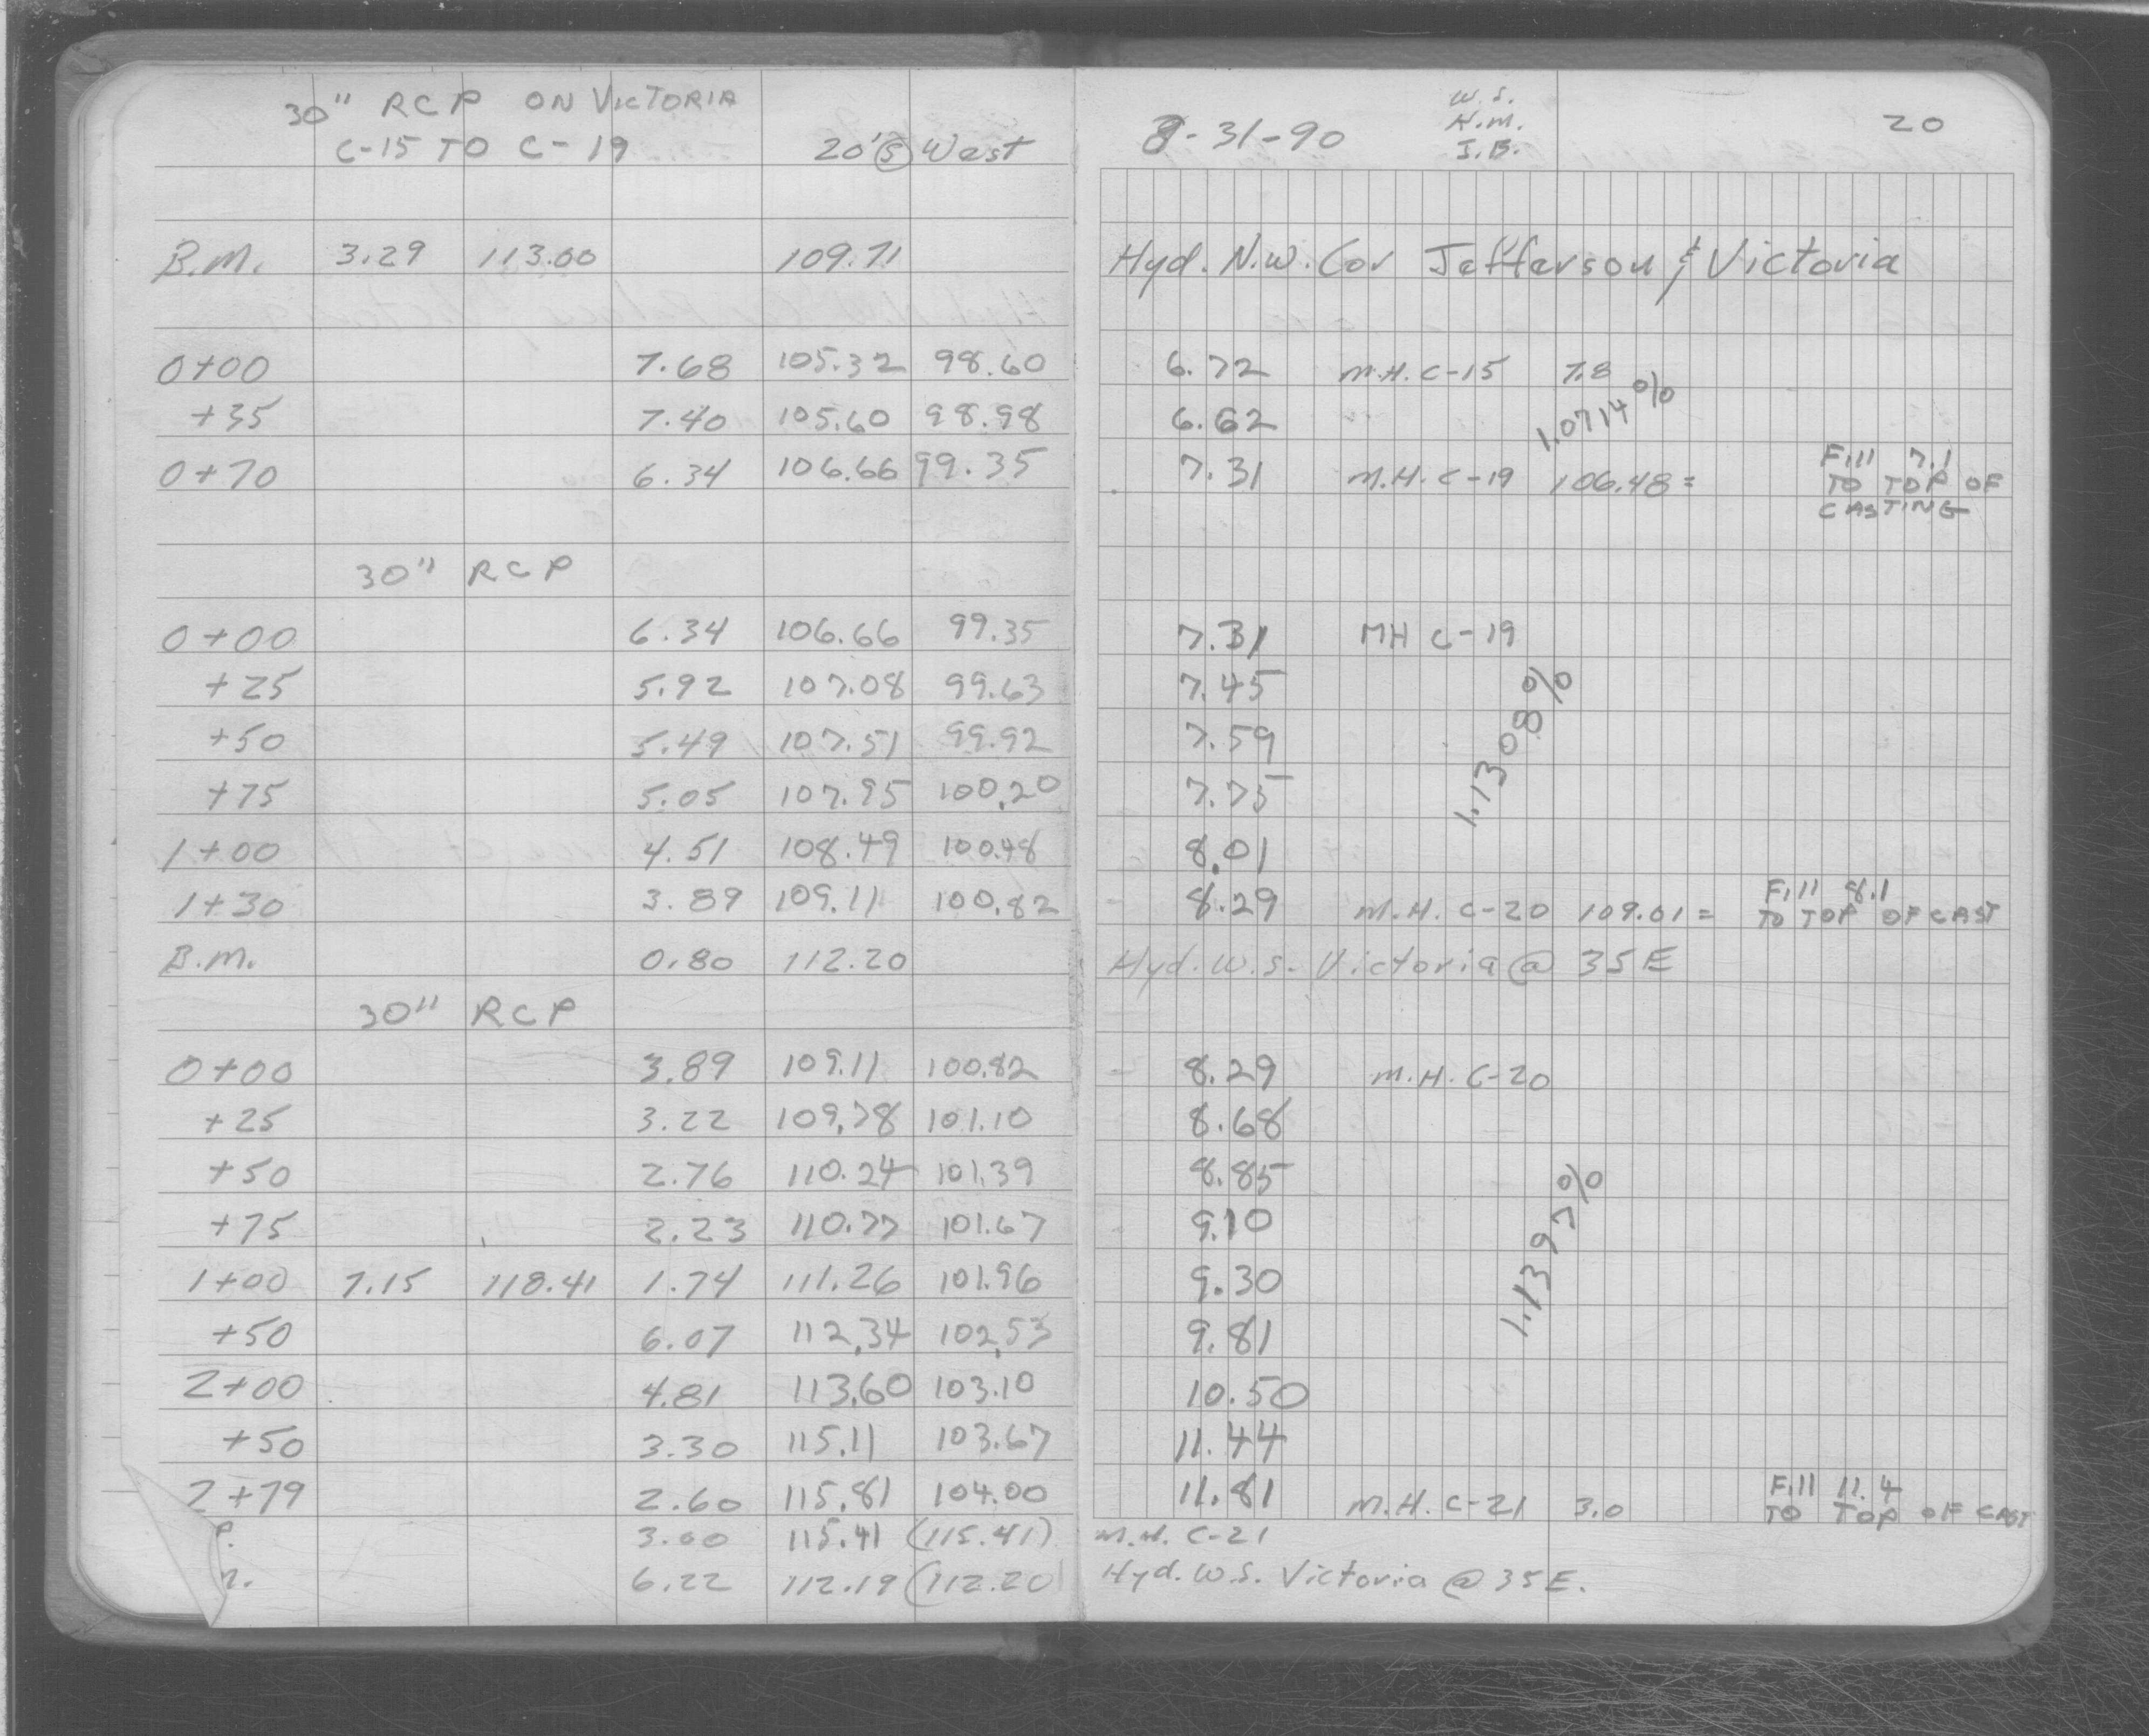 30" RCP ON VICTORIA
C-15 TO C-19 20'Ⓢ West
B.M. 3.29 113.00 109.71
0+00 7.68 105.32 98.60
+35 7.40 105.60 98.98
0+70 6.34 106.66 99.35
30" RCP
0+00 6.34 106.66 99.35
+25 5.92 107.08 99.63
+50 5.49 107.51 99.92
+75 5.05 107.95 100.20
1+00 4.51 108.49 100.48
1+30 3.89 109.11 100.82
B.M. 0.80 112.20
30" RCP
0+00 3.89 109.11 100.82
+25 3.22 109.78 101.10
+50 2.76 110.24 101.39
+75 2.23 110.77 101.67
1+00 7.15 118.41 1.74 111.26 101.96
+50 6.07 112.34 102.53
2+00 4.81 113.60 103.10
+50 3.30 115.11 103.67
2+79 2.60 115.81 104.00
P. 3.00 115.41 (115.41)
6.22 112.19 (112.20)
8-31-90
W.S.
K.M.
J.B.
20
Hyd. N.W. Cor Jefferson & Victoria
6.72 M.H. C-15 7.8
6.62 1.0714%
7.31 M.H. C-19 106.48 = Fill 7.1
TO TOP OF
CASTING
7.31 MH C-19
7.45
7.59 1.1308%
7.75
8.01
8.29 M.H. C-20 109.01 = Fill 8.1
TO TOP OF CAST
Hyd. W.S. Victoria @ 35E
8.29 M.H. C-20
8.68
8.85
9.10 1.1397%
9.30
9.81
10.50
11.44
11.81 M.H. C-21 3.0 Fill 11.4
TO TOP OF CAST
M.H. C-21
Hyd. W.S. Victoria @ 35E.